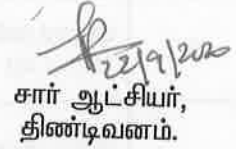 22/9/2020
சார் ஆட்சியர்,
திண்டிவனம்.